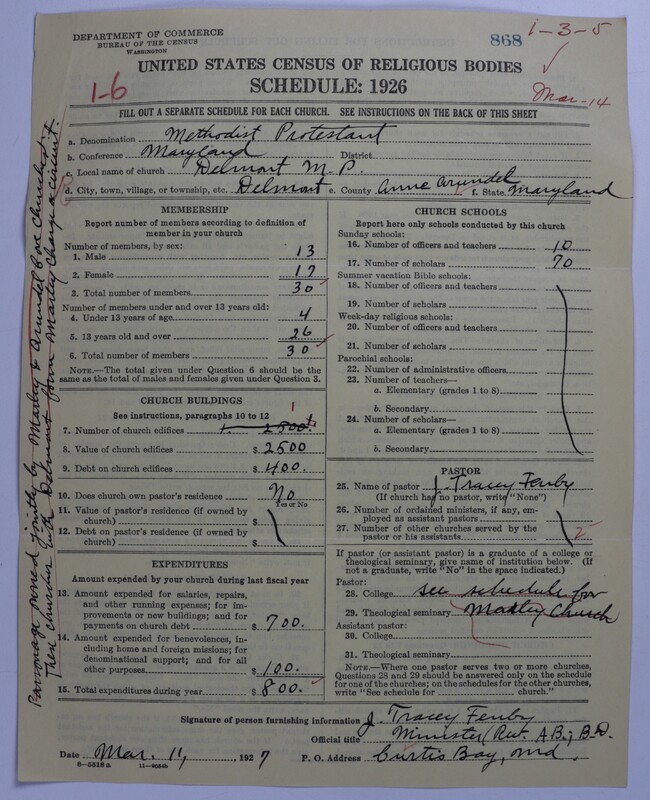 DEPARTMENT OF COMMERCE
BUREAU OF THE CENSUS
WASHINGTON
868
1-3-5
Mar-14
1-6
UNITED STATES CENSUS OF RELIGIOUS BODIES
SCHEDULE: 1926
FILL OUT A SEPARATE SCHEDULE FOR EACH CHURCH. SEE INSTRUCTIONS ON THE BACK OF THIS SHEET
a. Denomination Methodist Protestant
b. Conference Maryland District
c. Local name of church Delmont M. P.
d. City, town, village, or township, etc. Delmont e. County Anne Arundel f. State Maryland
MEMBERSHIP
Report number of members according to definition of
member in your church
Number of members, by sex:
1. Male 13
2. Female 17
3. Total number of members 30
Number of members under and over 13 years old:
4. Under 13 years of age 4
5. 13 years old and over 26
6. Total number of members 30
NOTE.—The total given under Question 6 should be the
same as the total of males and females given under Question 3.
CHURCH BUILDINGS
See instructions, paragraphs 10 to 12
1
7. Number of church edifices 1. 2500
8. Value of church edifices $ 2500
9. Debt on church edifices $ 400.
10. Does church own pastor's residence? No
Yes or No
11. Value of pastor's residence (if owned by
church) $
12. Debt on pastor's residence (if owned by
church) $
EXPENDITURES
Amount expended by your church during last fiscal year
13. Amount expended for salaries, repairs,
and other running expenses; for im-
provements or new buildings; and for
payments on church debt $ 700.
14. Amount expended for benevolences, in-
cluding home and foreign missions; for
denominational support; and for all
other purposes $ 100.
15. Total expenditures during year $ 800.
CHURCH SCHOOLS
Report here only schools conducted by this church
Sunday schools:
16. Number of officers and teachers 10
17. Number of scholars 70
Summer vacation Bible schools:
18. Number of officers and teachers
19. Number of scholars
Week-day religious schools:
20. Number of officers and teachers
21. Number of scholars
Parochial schools:
22. Number of administrative officers
23. Number of teachers—
a. Elementary (grades 1 to 8)
b. Secondary
24. Number of scholars—
a. Elementary (grades 1 to 8)
b. Secondary
PASTOR
25. Name of pastor J. Tracey Fenby
(If church has no pastor, write "None")
26. Number of ordained ministers, if any, em-
ployed as assistant pastors
27. Number of other churches served by the
pastor or his assistants 2
If pastor (or assistant pastor) is a graduate of a college or
theological seminary, give name of institution below. (If
not a graduate, write "No" in the space indicated.)
Pastor:
28. College see schedule for
29. Theological seminary Marley Church
Assistant pastor:
30. College
31. Theological seminary
NOTE.—Where one pastor serves two or more churches,
Questions 28 and 29 should be answered only on the schedule
for one of the churches; on the schedules for the other churches,
write "See schedule for church."
Signature of person furnishing information J. Tracey Fenby
Official title Minister (Rev. A.B., B.D.
Date Mar. 11, 1927 P. O. Address Curtis Bay, Md.
8-5518a
Parsonage owned jointly by Marley & Arundel Cove Churches.
These churches with Delmont form Marley Charge or circuit.